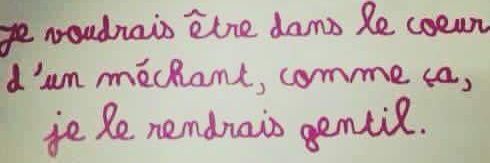 Je voudrais être dans le coeur
d'un méchant, comme ça,
je le rendrais gentil.